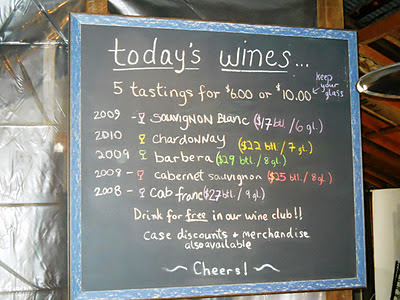 today's wines...
5 tastings for $6.00 or $10.00
keep
your
glass
2009 - Sauvignon Blanc ($17 btl / 6 gl.)
2010 chardonnay ($22 btl. / 7 gl.)
2009 barbera ($29 btl. / 8 gl.)
2008 - cabernet sauvignon ($25 btl / 8 gl.)
2008 - Cab franc ($27 btl. / 9 gl.)
Drink for free in our wine club!!
Case discounts + Merchandise
also available
~ Cheers! ~